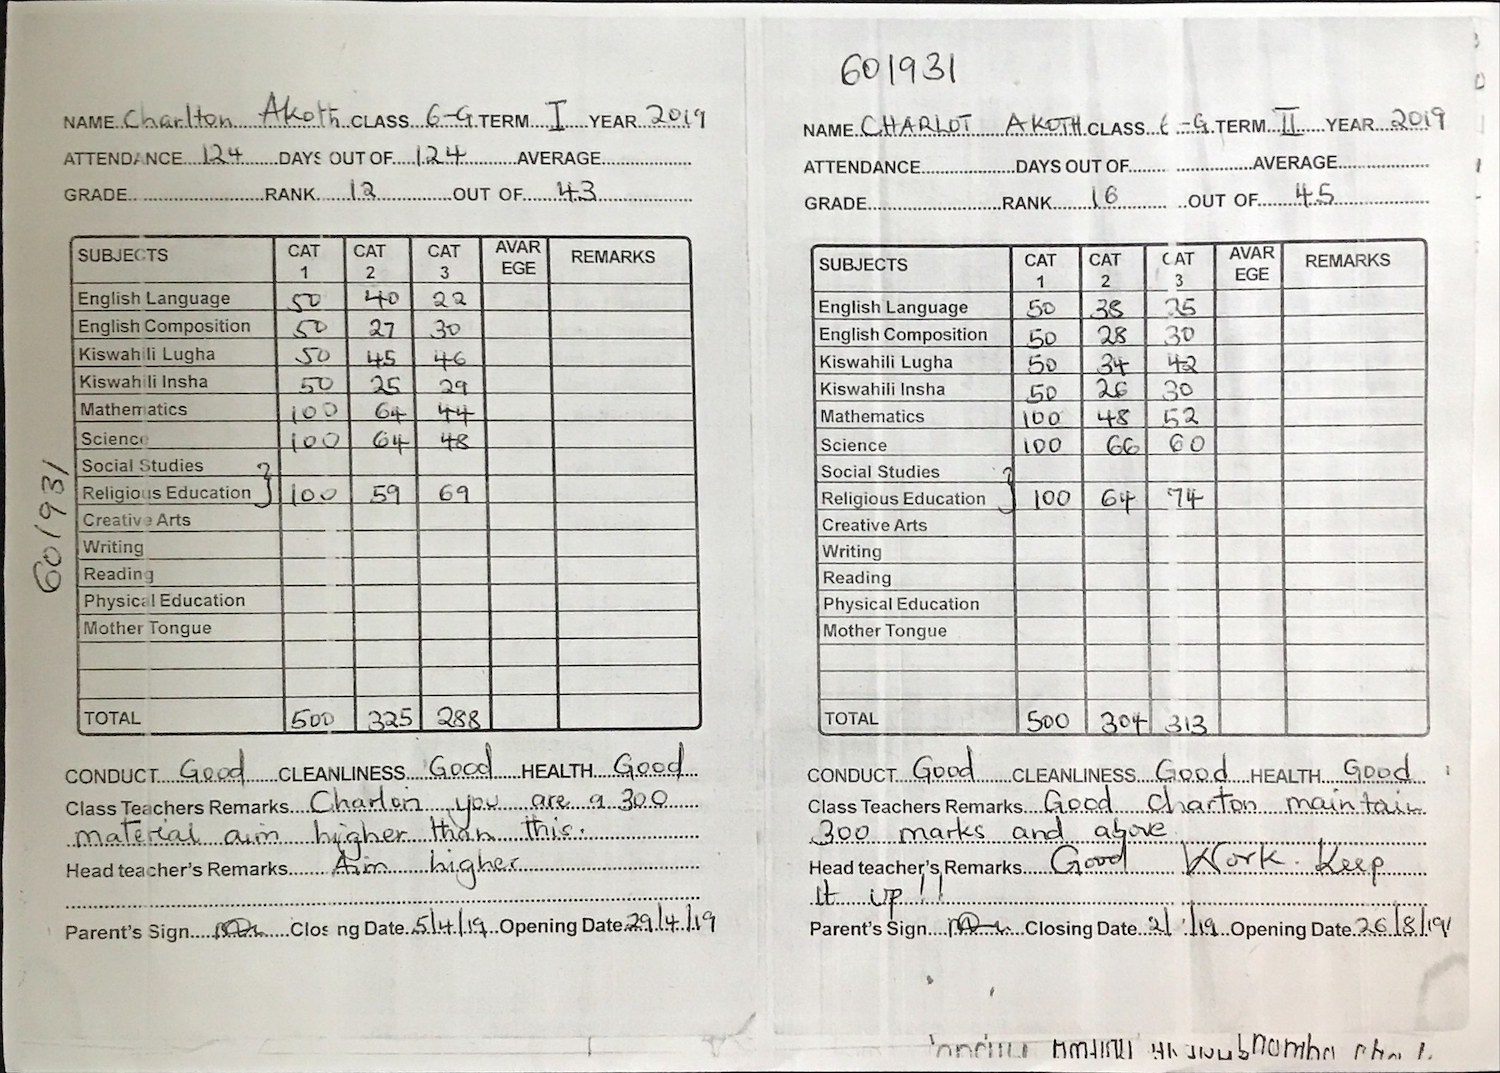 NAME Charlton Akoth CLASS 6-G TERM I YEAR 2019
ATTENDANCE 124 DAYS OUT OF 124 AVERAGE
GRADE RANK 12 OUT OF 43
SUBJECTS CAT 1 CAT 2 CAT 3 AVAREGE REMARKS
English Language 50 40 22
English Composition 50 27 30
Kiswahili Lugha 50 45 46
Kiswahili Insha 50 25 29
Mathematics 100 64 44
Science 100 64 48
Social Studies
Religious Education 100 59 69
Creative Arts
Writing
Reading
Physical Education
Mother Tongue
TOTAL 500 325 288
CONDUCT Good CLEANLINESS Good HEALTH Good
Class Teachers Remarks Charlon you are a 300
material aim higher than this.
Head teacher's Remarks Aim higher
Parent's Sign Closing Date 5/4/19 Opening Date 29/4/19
601931
601931
NAME CHARLOT AKOTH CLASS 6-G TERM II YEAR 2019
ATTENDANCE DAYS OUT OF AVERAGE
GRADE RANK 16 OUT OF 45
SUBJECTS CAT 1 CAT 2 CAT 3 AVAREGE REMARKS
English Language 50 38 25
English Composition 50 28 30
Kiswahili Lugha 50 34 42
Kiswahili Insha 50 26 30
Mathematics 100 48 52
Science 100 66 60
Social Studies
Religious Education 100 64 74
Creative Arts
Writing
Reading
Physical Education
Mother Tongue
TOTAL 500 304 313
CONDUCT Good CLEANLINESS Good HEALTH Good
Class Teachers Remarks Good Charton maintain
300 marks and above
Head teacher's Remarks Good Work. Keep
It up!!
Parent's Sign Closing Date Opening Date 26/8/19